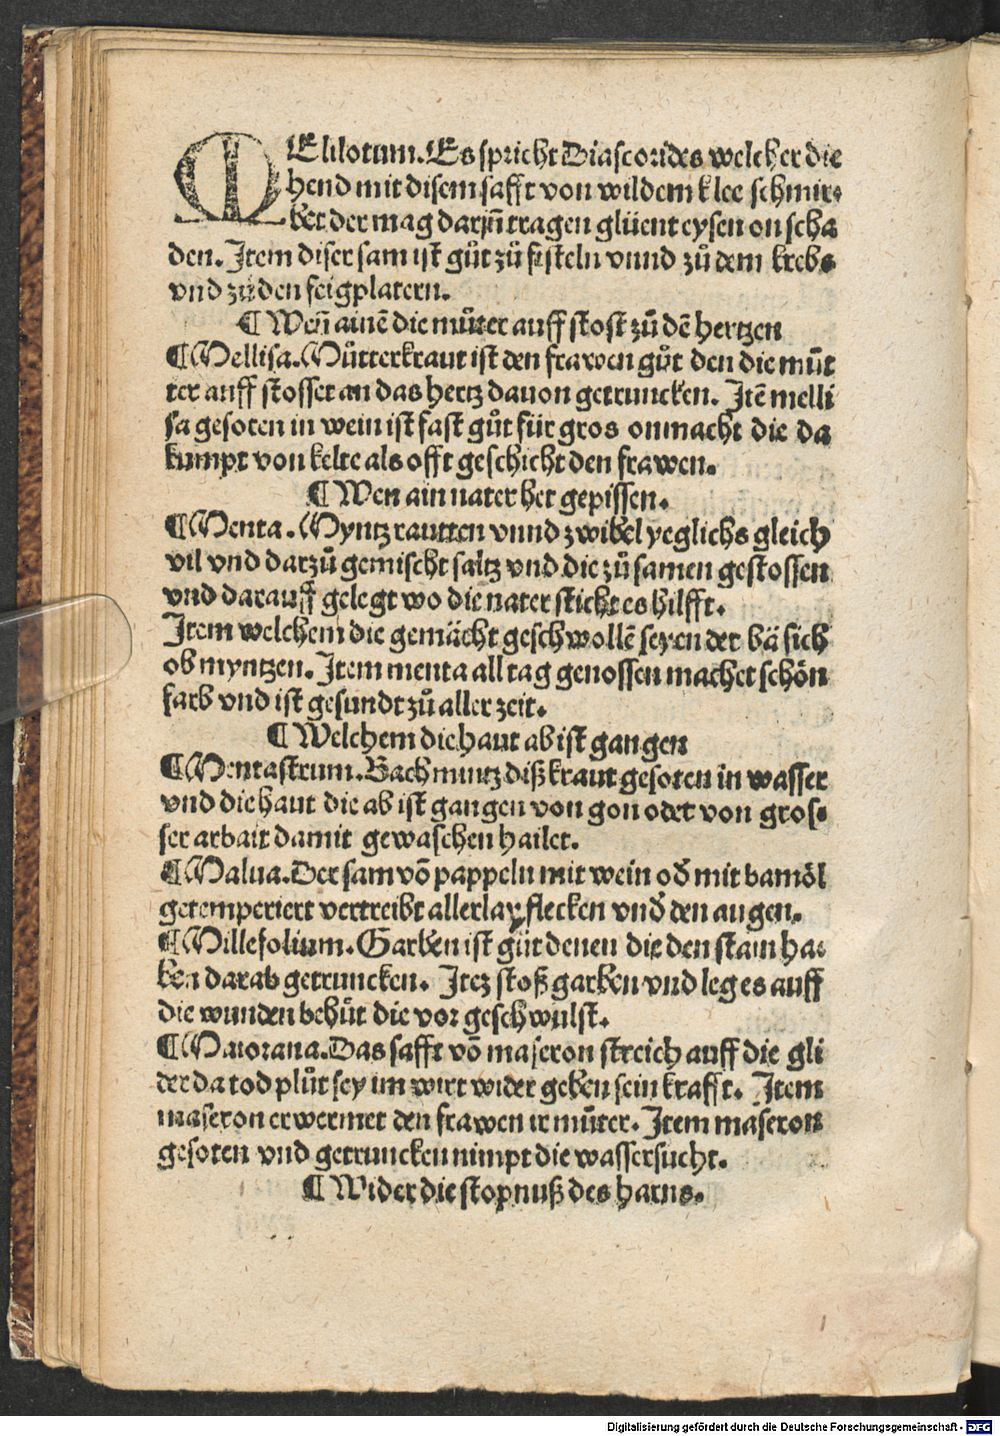 MElilotum. Es spricht Diascorides welcher die
hend mit disem safft von wildem klee schmir⸗
bet der mag darjñ tragen glüent eysen on scha
den. Item diser sam ist gůt zů fisteln vnnd zů dem krebs
vnd zů den feigplatern.
¶ Weñ ainē die můter auff stost zů dē hertzen
¶ Mellisa. Můtterkraut ist den frawen gůt den die můt
ter auff stosset an das hertz dauon getruncken. Itē melli
sa gesoten in wein ist fast gůt für gros onmacht die da
kumpt von kelte als offt geschicht den frawen.
¶ Wen ain nater het gepissen.
¶ Menta. Myntz rautten vnnd zwibel yeglichs gleich
vil vnd darzů gemischt saltz vnd die zůsamen gestossen
vnd darauff gelegt wo die nater sticht es hilfft.
Item welchem die gemächt geschwollē seyen der bä sich
ob myntzen. Item menta all tag genossen machet schön
farb vnd ist gesundt zů aller zeit.
¶ Welchem die haut ab ist gangen
¶ Mentastrum. Bachmintz diß kraut gesoten in wasser
vnd die haut die ab ist gangen von gon oder von gros⸗
ser arbait damit gewaschen hailet.
¶ Malua. Der sam vō pappeln mit wein oď mit bamöl
getemperiert vertreibt allerlay flecken vnď den augen.
¶ Millefolium. Garben ist gůt denen die den stain ha⸗
ben darab getruncken. Itez stoß garben vnd leg es auff
die wunden behůt die vor geschwulst.
¶ Maiorana. Das safft vō maseron streich auff die gli
der da tod plůt sey im wirt wider geben sein krafft. Item
maseron erwermet den frawen ir můter. Item maseron
gesoten vnd getruncken nimpt die wassersucht.
¶ Wider die stopnuß des harns.
Digitalisierung gefördert durch die Deutsche Forschungsgemeinschaft - DFG